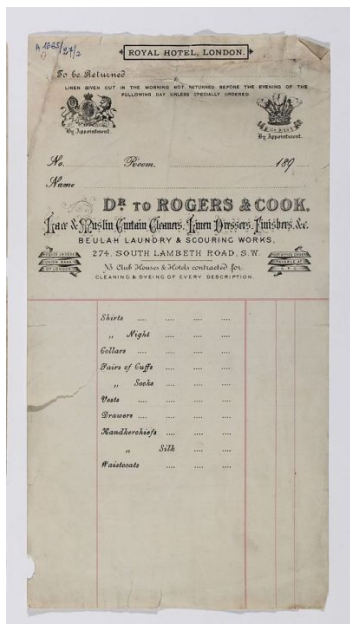 A 1085/27/2
ROYAL HOTEL, LONDON.
To be Returned
LINEN GIVEN OUT IN THE MORNING NOT RETURNED BEFORE THE EVENING OF THE
FOLLOWING DAY UNLESS SPECIALLY ORDERED.
By Appointment. By Appointment.
No. Room. 189
Name
DR TO ROGERS & COOK,
Lace & Muslin Curtain Cleaners, Linen Dressers, Finishers, &c.
BEULAH LAUNDRY & SCOURING WORKS,
274, SOUTH LAMBETH ROAD, S.W.
Club Houses & Hotels contracted for.
CLEANING & DYEING OF EVERY DESCRIPTION.
Shirts .... .... .... ....
„ Night .... .... ....
Collars .... .... .... ....
Pairs of Cuffs .... .... ....
„ Socks .... .... ....
Vests .... .... .... ....
Drawers .... .... .... ....
Handkerchiefs .... .... ....
„ Silk .... ....
Waistcoats .... .... ....